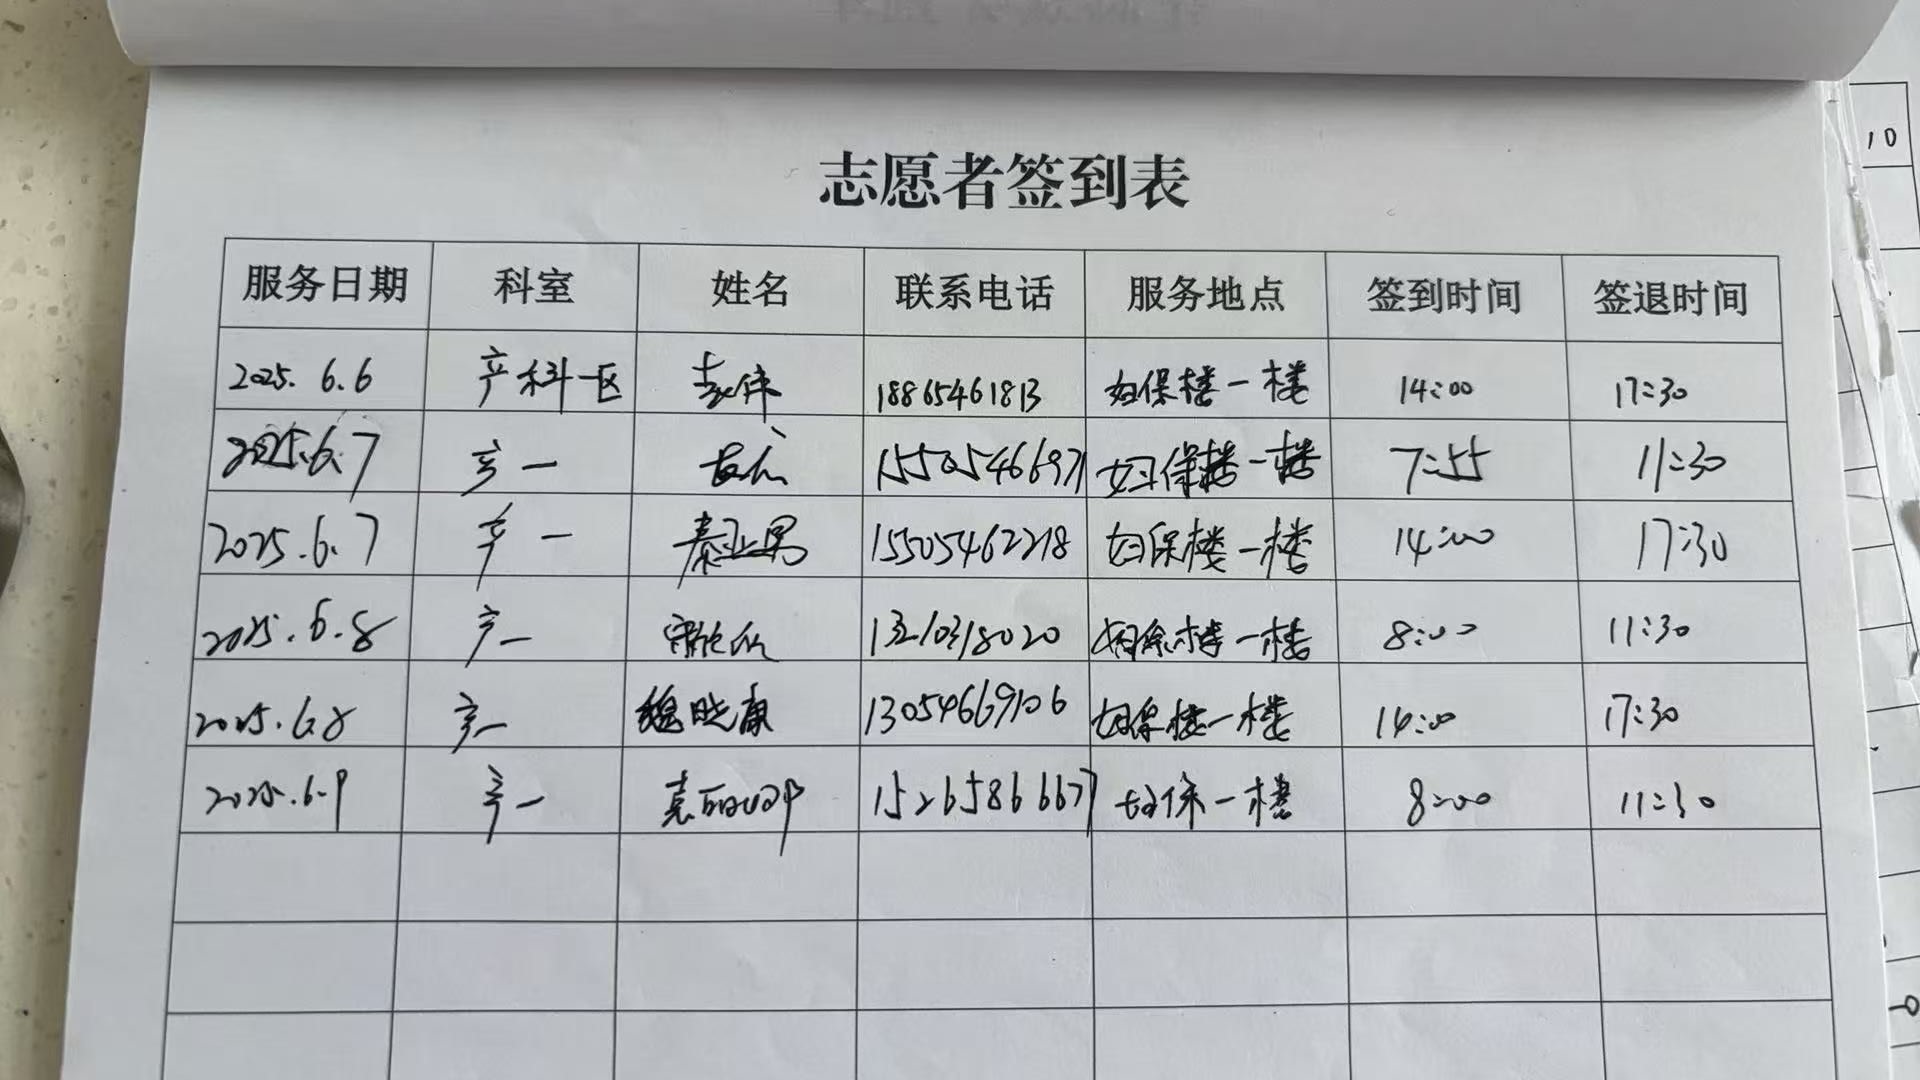 志愿者签到表
服务日期 科室 姓名 联系电话 服务地点 签到时间 签退时间
2025.6.6 产科一区 18865461813 妇保楼一楼 14:00 17:30
2025.6.7 产一 15505466971 妇保楼一楼 7:55 11:30
2025.6.7 产一 秦亚男 15505462218 妇保楼一楼 14:00 17:30
2025.6.8 产一 13210318020 妇保楼一楼 8:00 11:30
2025.6.8 产一 魏晓康 13054669106 妇保楼一楼 14:00 17:30
2025.6.9 产一 15265866671 妇保一楼 8:00 11:30
10